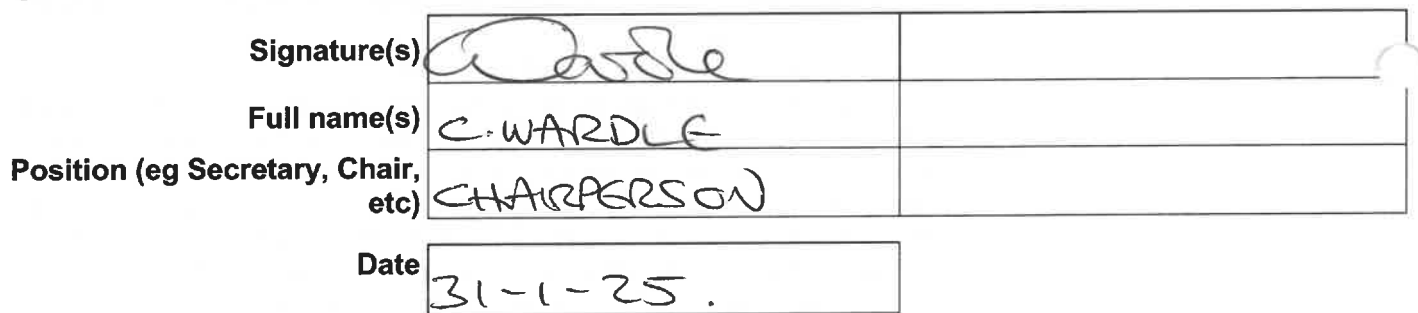 Signature(s) C Wardle
Full name(s) C. WARDLE
Position (eg Secretary, Chair,
etc) CHAIRPERSON
Date 31-1-25.